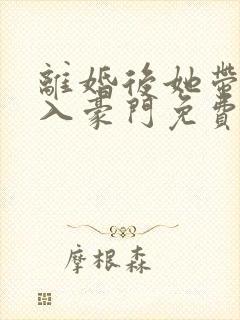 離婚後她帶
入豪門免費
摩根森